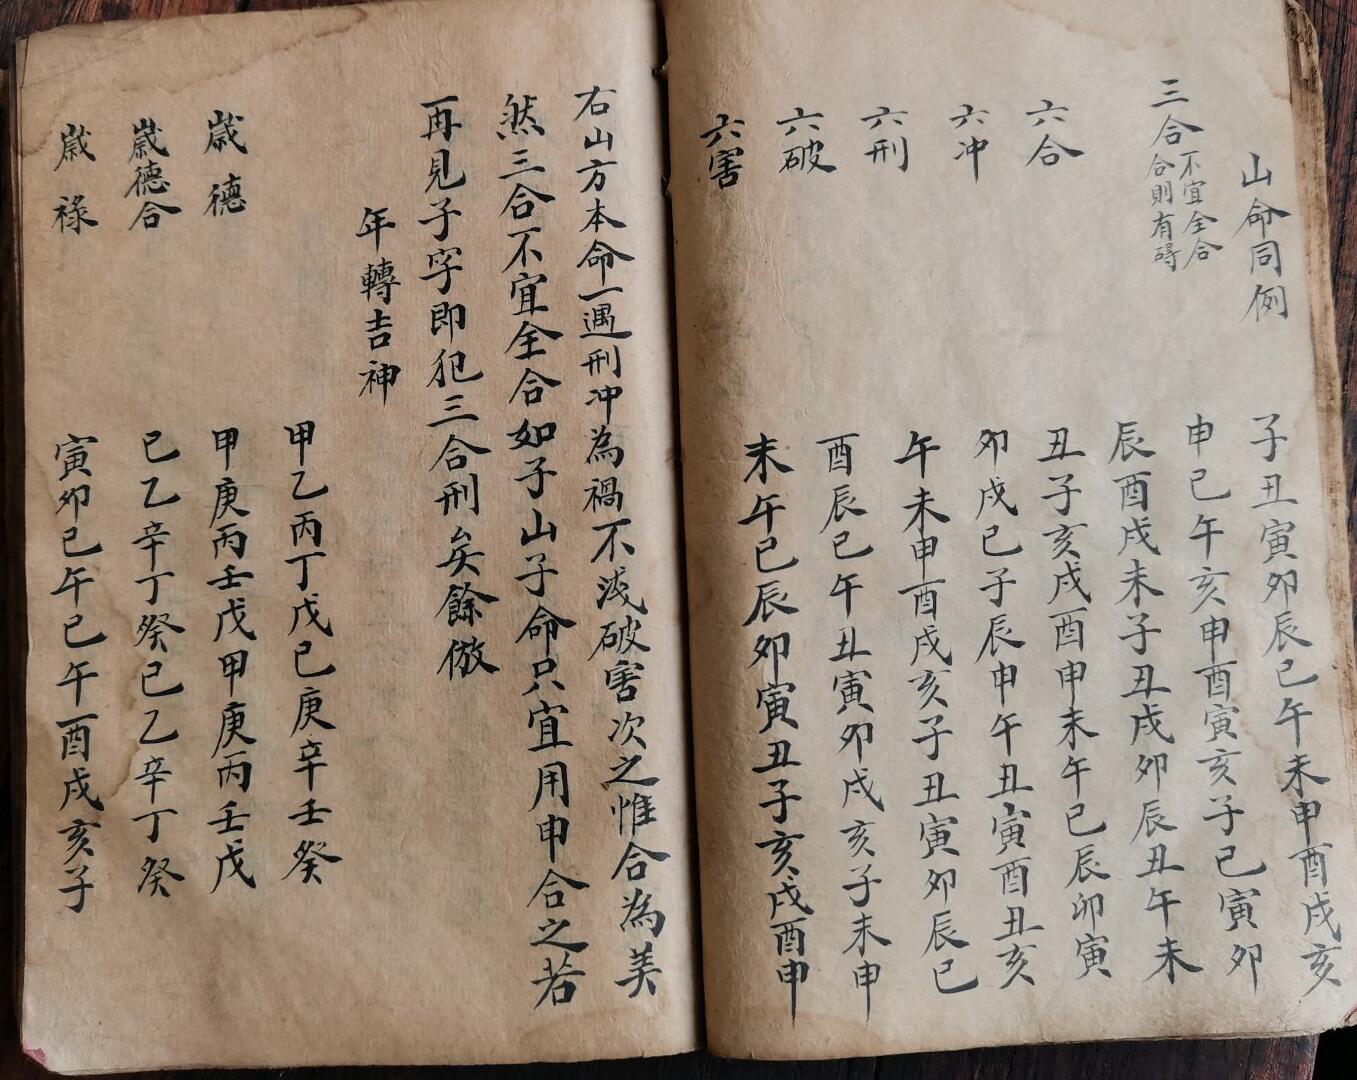 山命同例 子丑寅卯辰巳午未申酉戌亥
三合 不宜全合 合則有碍 申巳午亥申酉寅亥子巳寅卯
辰酉戌未子丑戌卯辰丑午未
六合 丑子亥戌酉申未午巳辰卯寅
六冲 卯戌巳子辰申午丑寅酉丑亥
六刑 午未申酉戌亥子丑寅卯辰巳
六破 酉辰巳午丑寅卯戌亥子未申
六害 未午巳辰卯寅丑子亥戌酉申
右山方本命一遇刑冲為禍不浅破害次之惟合為美
然三合不宜全合如子山子命只宜用申合之若
再見子字即犯三合刑矣餘倣
年轉吉神
甲乙丙丁戊己庚辛壬癸
歲德 甲庚丙壬戊甲庚丙壬戊
歲德合 己乙辛丁癸己乙辛丁癸
歲祿 寅卯巳午巳午酉戌亥子